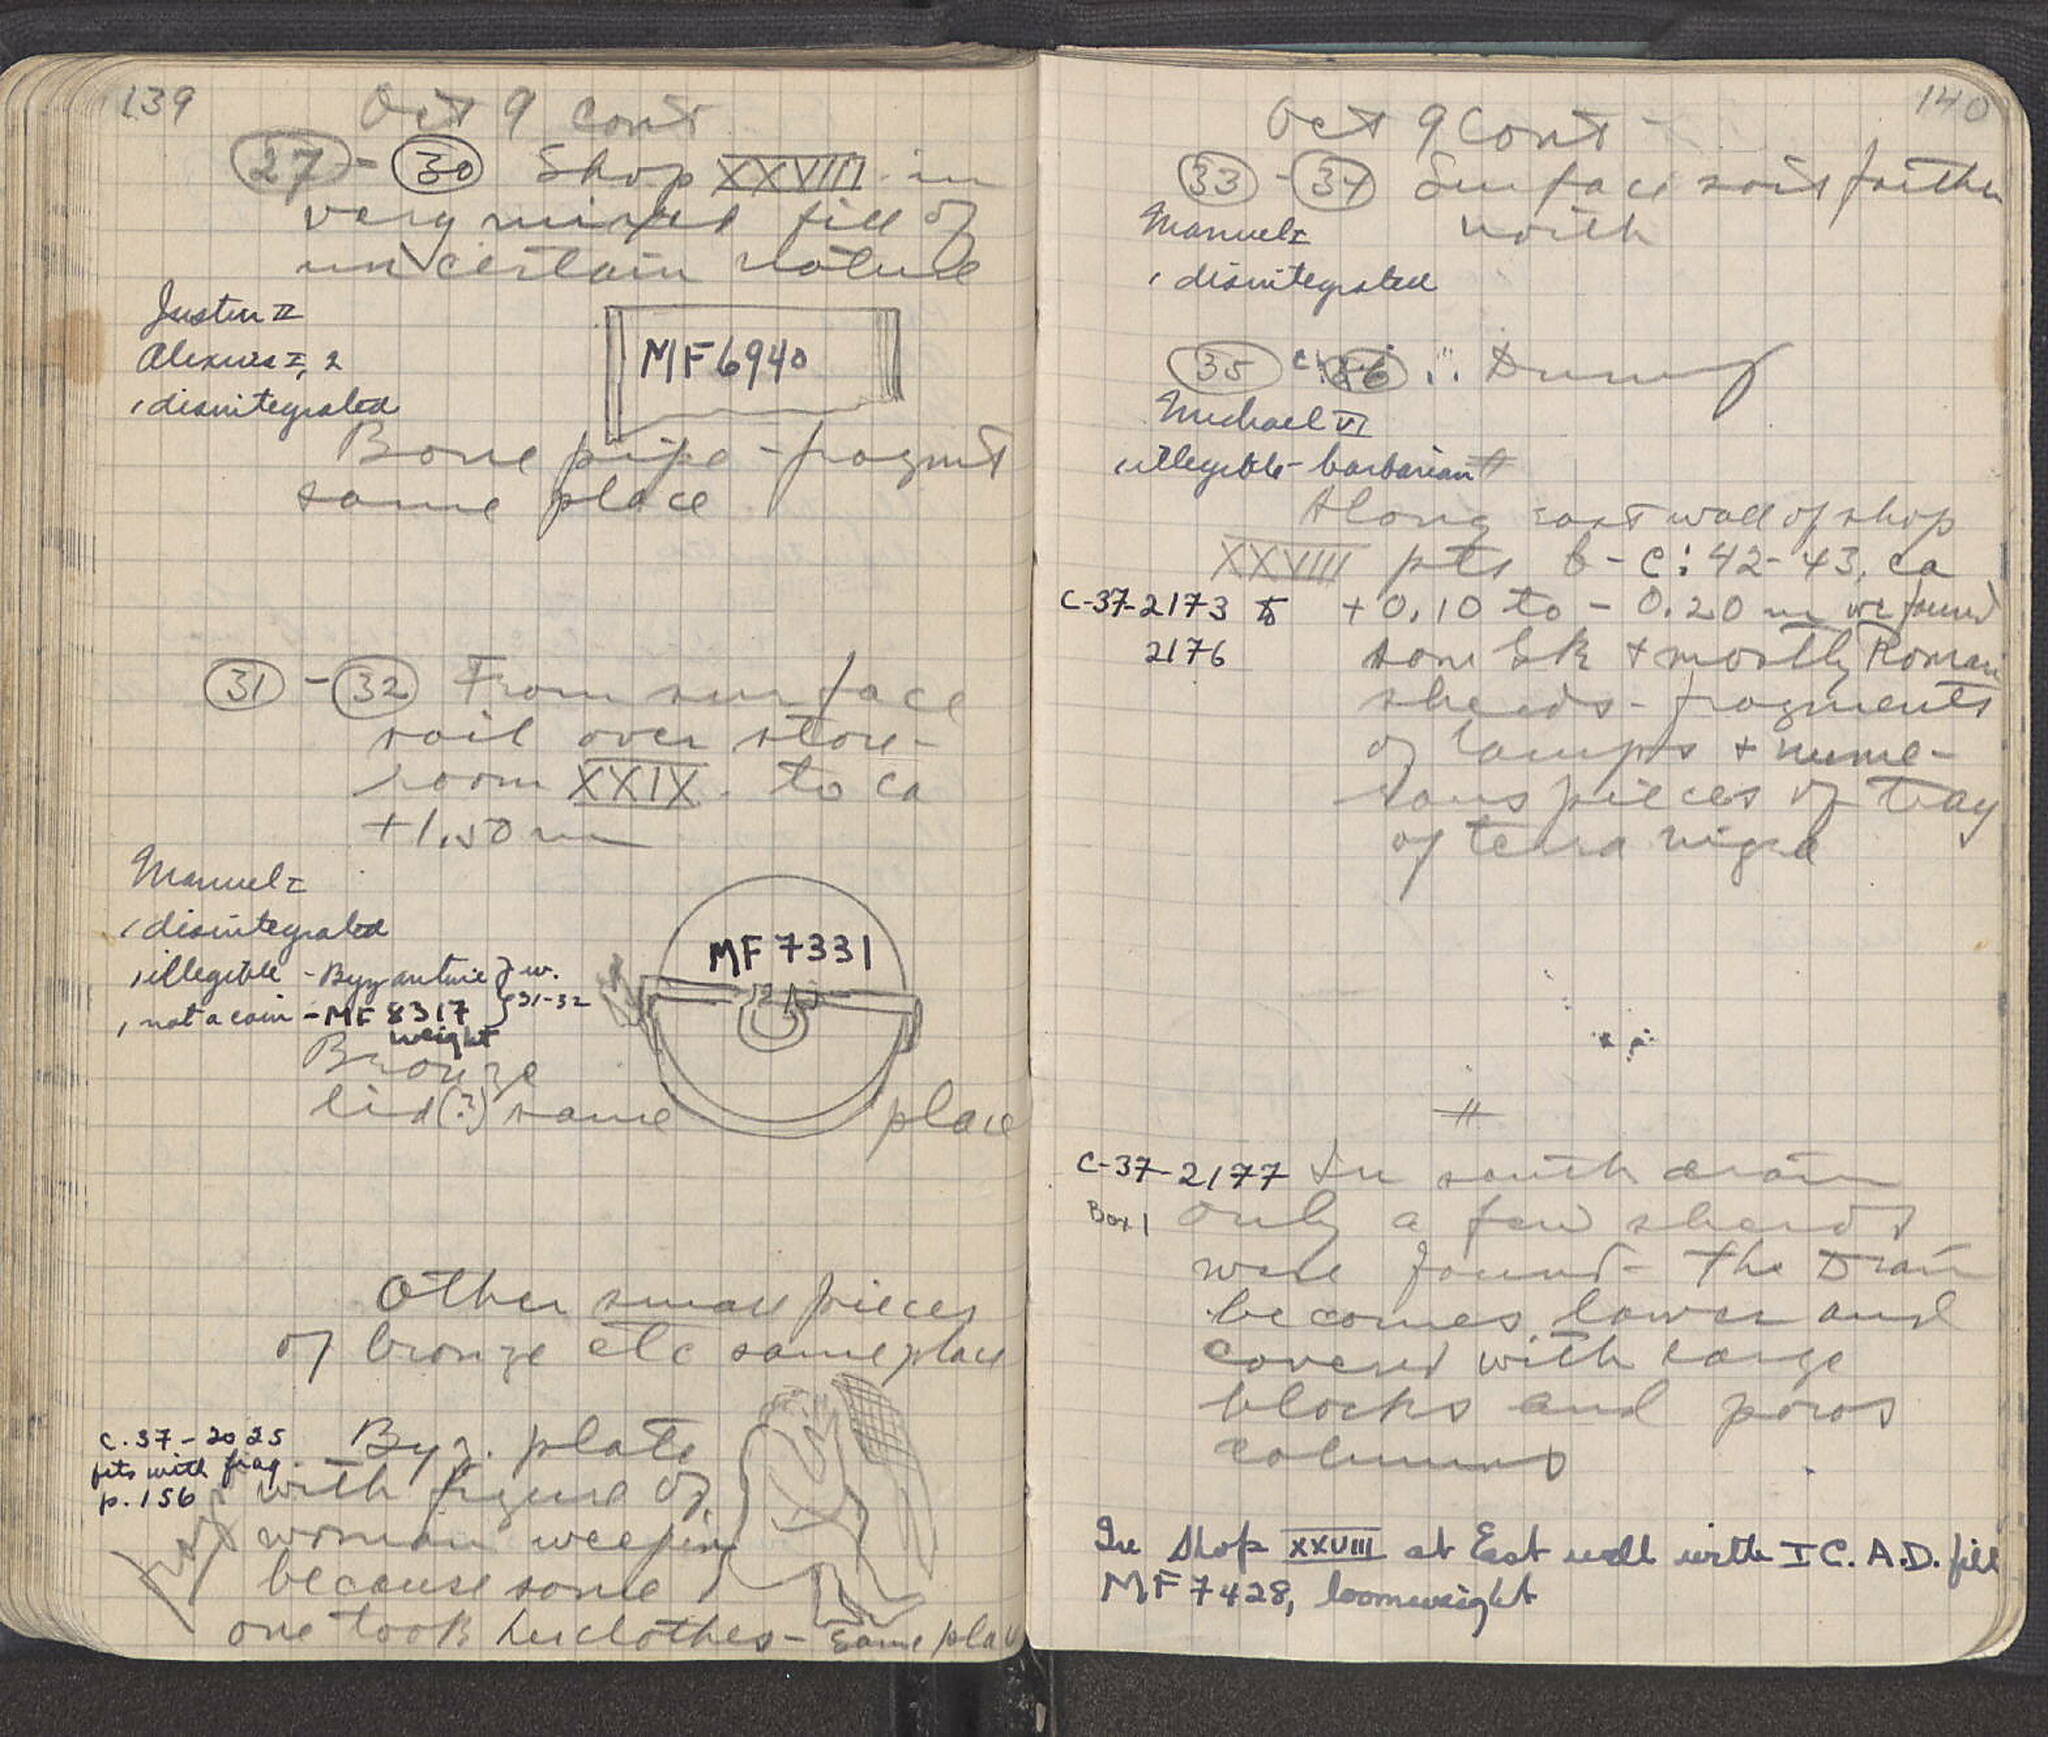 139
Oct 9 Cont
27 - 30 Shop XXVIII in
very mixed fill of
uncertain nature
Justin II
Alexius I, 2
1 disintegrated
MF 6940
Bone pipe - fragmt
same place
31 - 32 From surface
soil over store-
room XXIX. to ca
+1.50 m
Manuel I
1 disintegrated
1 illegible - Byzantine } w.
1 not a coin - MF 8317 } 31-32
weight
MF 7331
Bronze
lid(?) same place
Other small pieces
of bronze etc same place
C.37-2025
fits with frag.
p.156
Byz. plate
with figure of
woman weeping
because some
one took her clothes - same place
140
Oct 9 Cont
33 - 34 Surface soil farther
north
Manuel I
1 disintegrated
35 36 Dump
Michael VI
1 illegible - barbarian
Along east wall of shop
XXVIII pts b-c:42-43, ca
C-37-2173 to
2176
+0.10 to -0.20 m we found
some Gk + mostly Roman
sherds - fragments
of lamps + nume-
rous pieces of tray
of terra nigra
#
C-37-2177
Box 1
In south drain
only a few sherds
were found - The Drain
becomes lower and
covered with large
blocks and poros
columns
In Shop XXVIII at East wall with I C. A.D. fill
MF 7428, loomweight